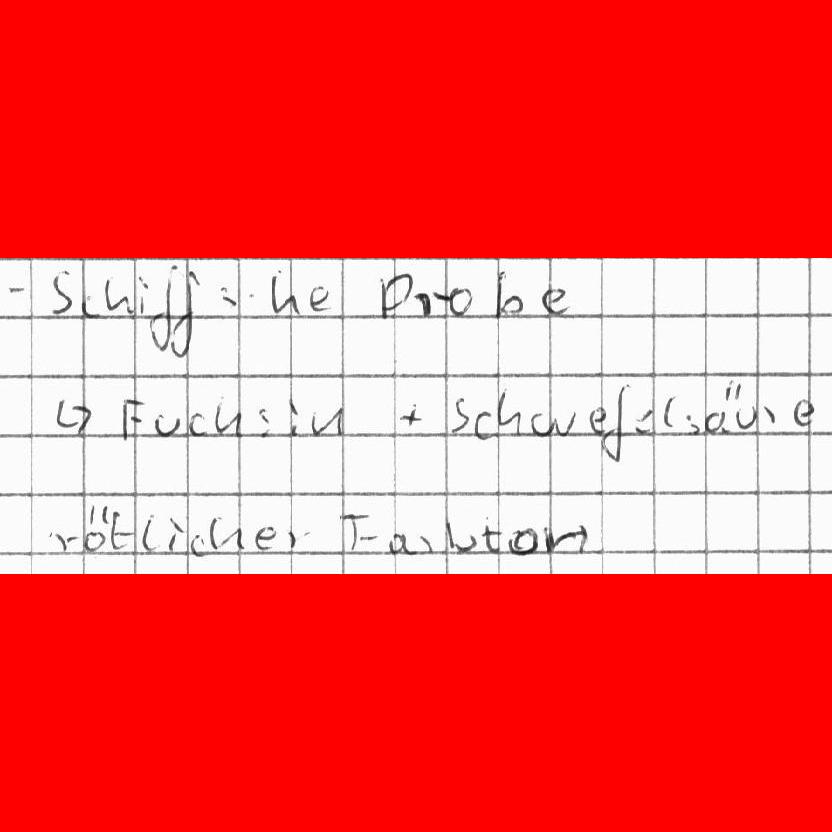 - Schiff'sche Probe
↳ Fuchsin + Schwefelsäure
rötlicher Farbton